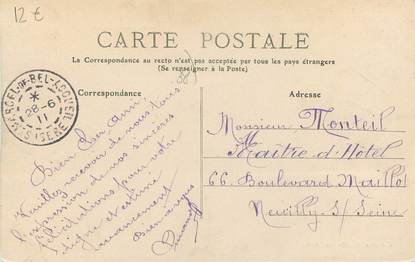 12 €
CARTE POSTALE
La Correspondance au recto n'est pas acceptée par tous les pays étrangers
(Se renseigner à la Poste)
Correspondance
Bien Cher Ami
Veuillez recevoir de nous tous
l'expression de nos sincères
félicitations pour votre
digne et estimé
avancement
Bien à vous
Adresse
Monsieur Monteil
Maître d'Hôtel
66 Boulevard Maillot
Neuilly s/ Seine
28-6
11
SEINE